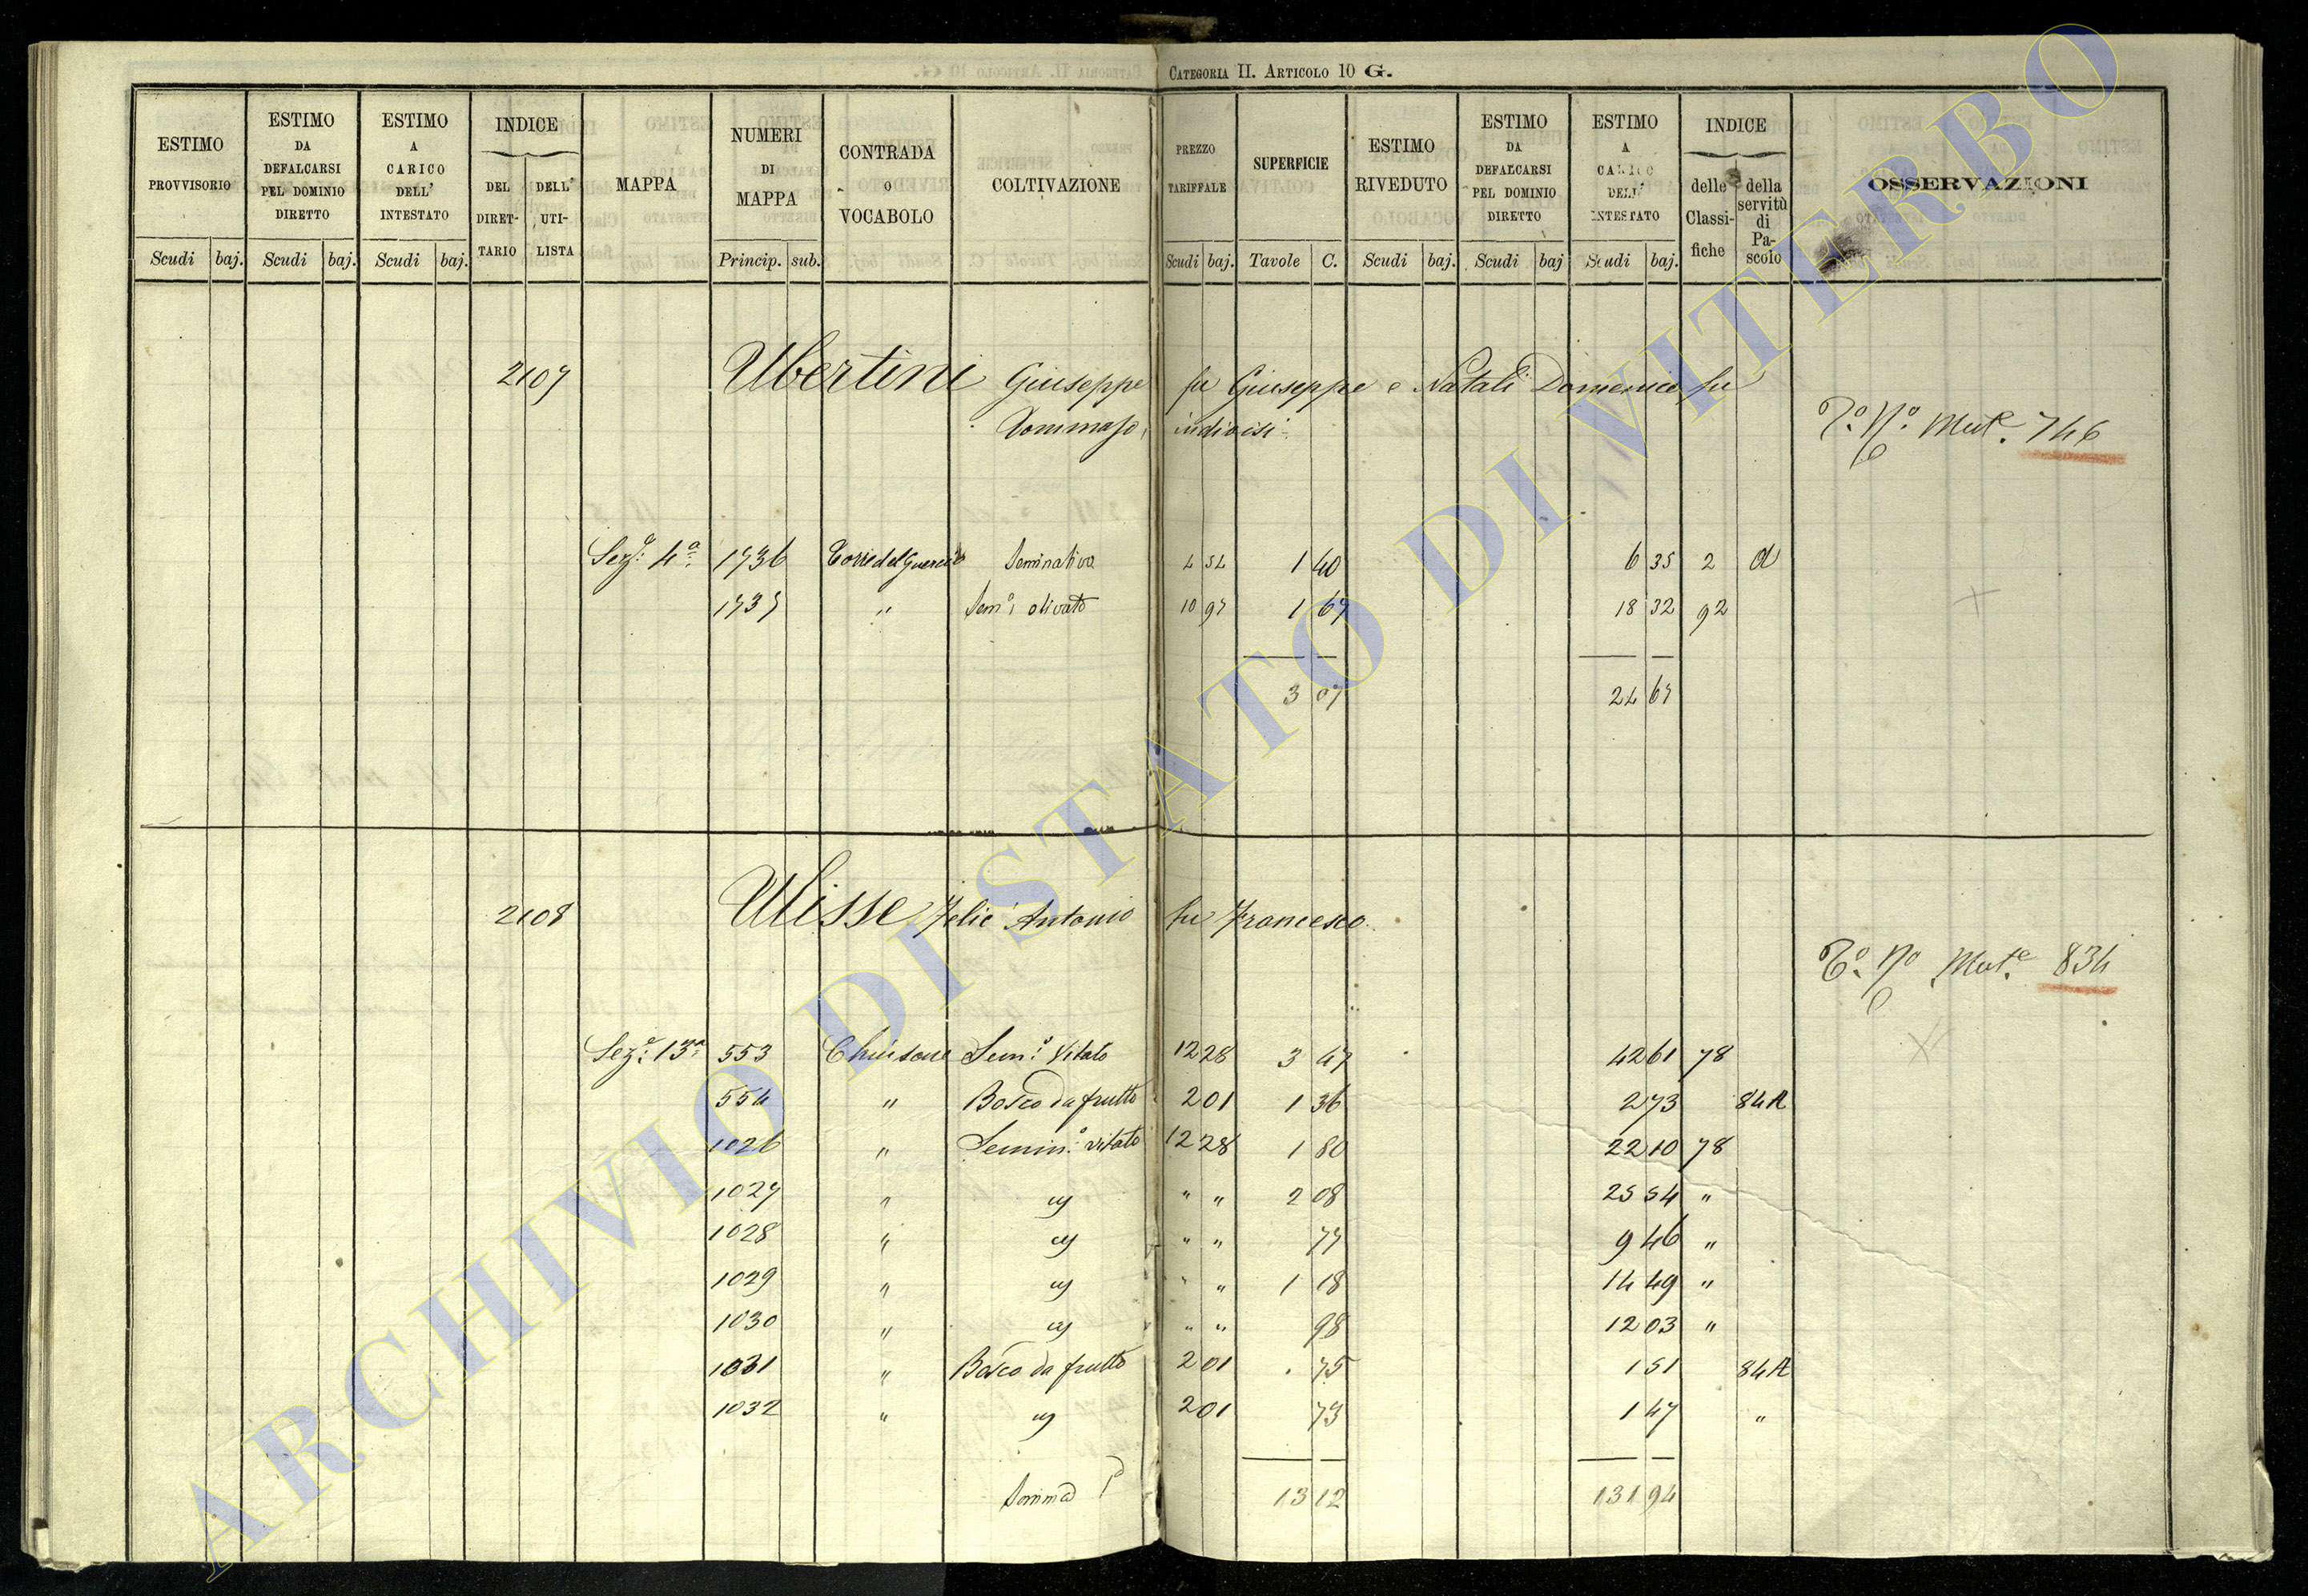 CATEGORIA II. ARTICOLO 10 G.
ESTIMO PROVVISORIO Scudi baj.
ESTIMO DA DEFALCARSI PEL DOMINIO DIRETTO Scudi baj.
ESTIMO A CARICO DELL' INTESTATO Scudi baj.
INDICE DEL DIRET-TARIO DELL' UTI-LISTA
MAPPA
NUMERI DI MAPPA Princip. sub.
CONTRADA O VOCABOLO
COLTIVAZIONE
PREZZO TARIFFALE Scudi baj.
SUPERFICIE Tavole C.
ESTIMO RIVEDUTO Scudi baj.
ESTIMO DA DEFALCARSI PEL DOMINIO DIRETTO Scudi baj
ESTIMO A CARICO DELL' INTESTATO Scudi baj.
INDICE delle Classi-fiche della servitù di Pa-scolo
OSSERVAZIONI
2107 Ubertini Giuseppe fu Giuseppe e Natali Domenico fu
Tommaso, indivisi
Mut.e 746
Sez.e 4a 1736 Torre del Guercio Seminativo 4 54 1 40 6 35 2 d
1737 " Sem.o olivato 10 97 1 67 18 32 92
3 07 24 67
2108 Ulisse Felic' Antonio fu Francesco
Mut.e 834
Sez.e 13a 553 Chiusone Sem.o Vitato 12 28 3 47 42 61 78
554 " Bosco da frutto 2 01 1 36 2 73 84 A
1026 " Semin.o vitato 12 28 1 80 22 10 78
1027 " " " 2 08 25 54 "
1028 " " " 77 9 46 "
1029 " " " 1 18 14 49 "
1030 " " " 98 12 03 "
1031 " Bosco da frutto 2 01 75 1 51 84 A
1032 " 2 01 73 1 47 "
Somma 13 12 131 94
ARCHIVIO DI STATO DI VITERBO